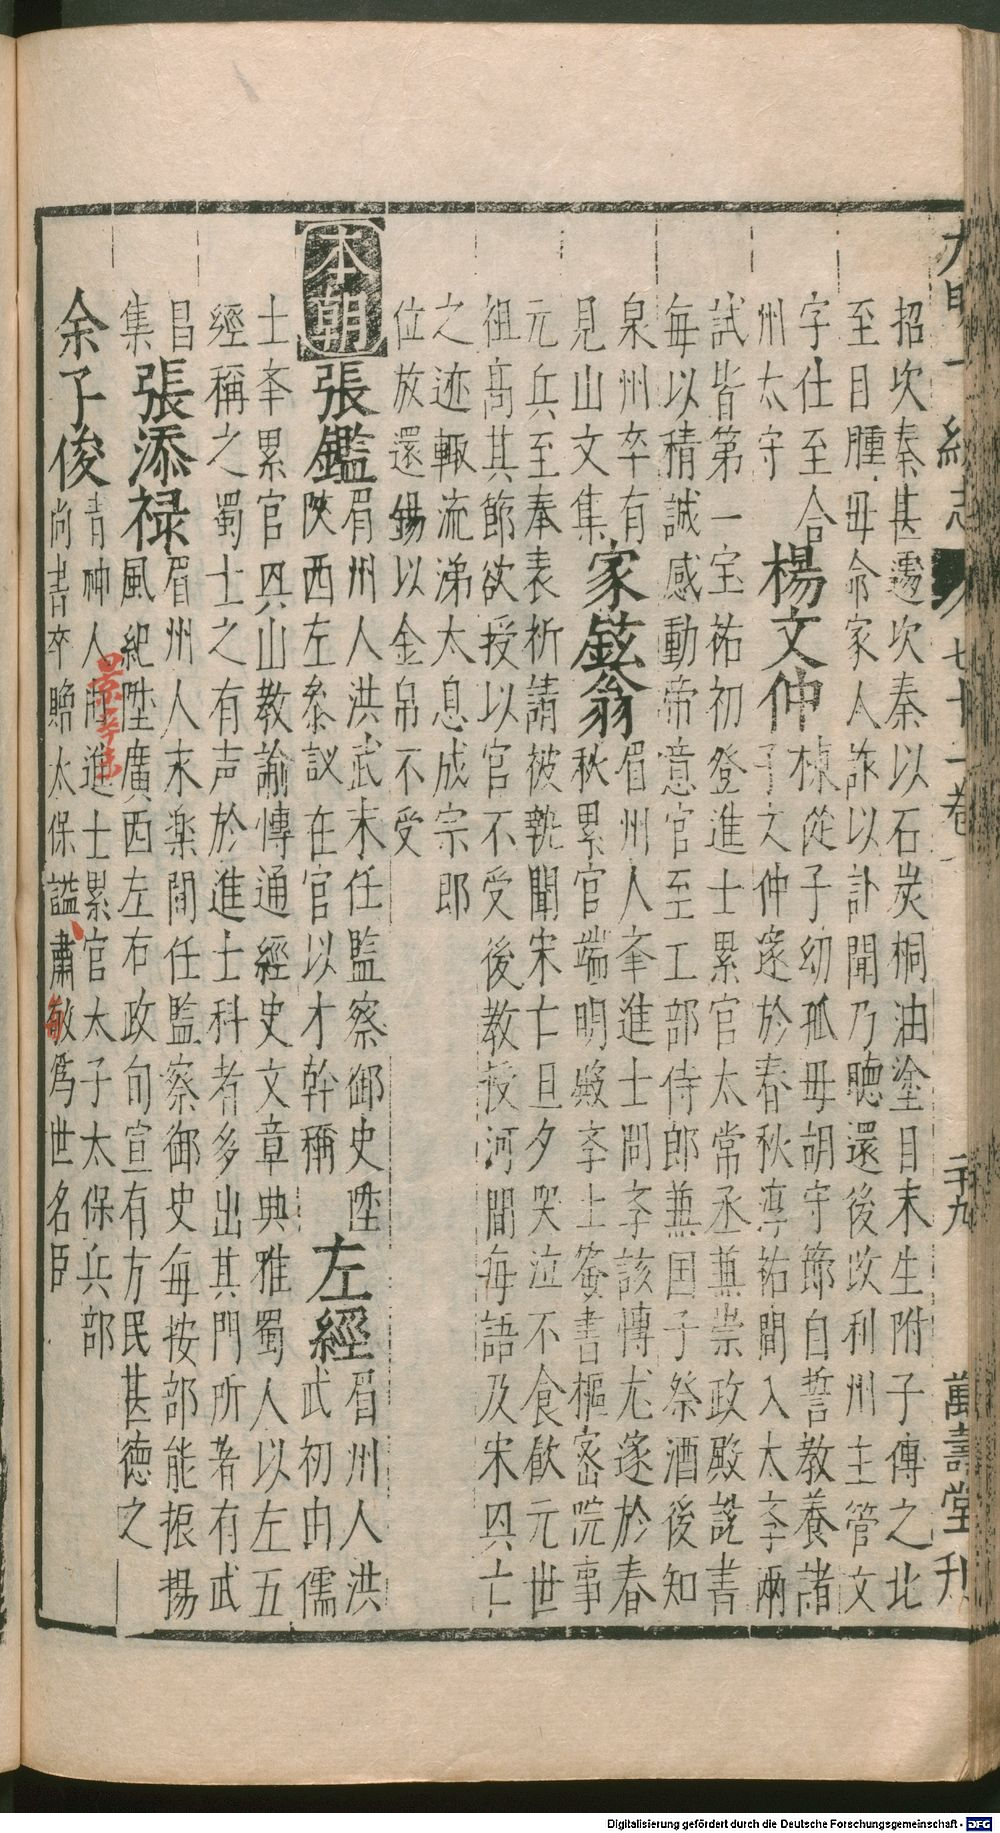 大明一統志 七十一卷 二十九 萬壽堂刊
招坎秦甚遷坎秦以石炭桐油塗目末生附子傳之北
至目腫毋命家人詐以訃聞乃聽還後改利州主管文
字仕至合
州太守
楊文仲
棟從子幼孤毋胡守節自誓教養諸
子文仲遂於春秋淳祐間入太斈兩
試皆第一宝祐初登進士累官太常丞兼崇政殿說書
每以積誠感動帝意官至工部侍郎兼国子祭酒後知
泉州卒有
見山文集
家鉉翁
眉州人斈進士問斈該愽尤遂於春
秋累官端明殿斈士簽書樞宻院事
元兵至奉表祈請被執聞宋亡旦夕哭泣不食飲元世
祖高其節欲授以官不受後教授河間每語及宋興亡
之迹輙流涕太息成宗郎
位放還錫以金帛不受
本朝
張鑑
眉州人洪武末任監察御史陞
陜西左叅議在官以才幹稱
左經
眉州人洪
武初由儒
士斈累官興山教諭愽通經史文章典雅蜀人以左五
經稱之蜀士之有声於進士科者多出其門所著有武
昌
集
張添祿
眉州人永楽間任監察御史每按部能振揚
風紀陞廣西左右政旬宣有方民甚德之
余子俊
青神人進士累官太子太保兵部
尚書卒贈太保謚肅敏為世名臣
景泰
敏
Digitalisierung gefördert durch die Deutsche Forschungsgemeinschaft - DFG